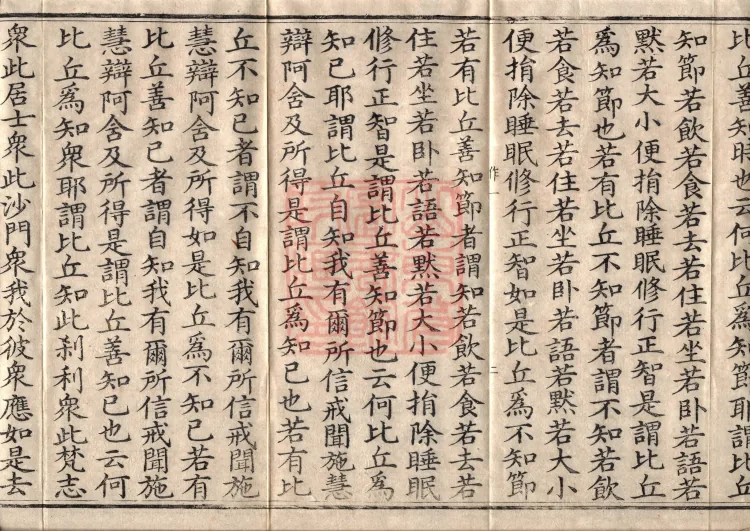 比丘善知時也云何比丘爲知節耶謂比丘
知節若飲若食若去若住若坐若卧若語若
黙若大小便捐除睡眠修行正智是謂比丘
爲知節也若有比丘不知節者謂不知若飲
若食若去若住若坐若卧若語若黙若大小
便捐除睡眠修行正智如是比丘爲不知節
若有比丘善知節者謂知若飲若食若去若
住若坐若卧若語若黙若大小便捐除睡眠
修行正智是謂比丘善知節也云何比丘爲
知己耶謂比丘自知我有爾所信戒聞施慧
辯阿含及所得是謂比丘爲知己也若有比
丘不知己者謂不自知我有爾所信戒聞施
慧辯阿含及所得如是比丘爲不知己若有
比丘善知己者謂自知我有爾所信戒聞施
慧辯阿含及所得是謂比丘善知己也云何
比丘爲知衆耶謂比丘知此刹利衆此梵志
衆此居士衆此沙門衆我於彼衆應如是去